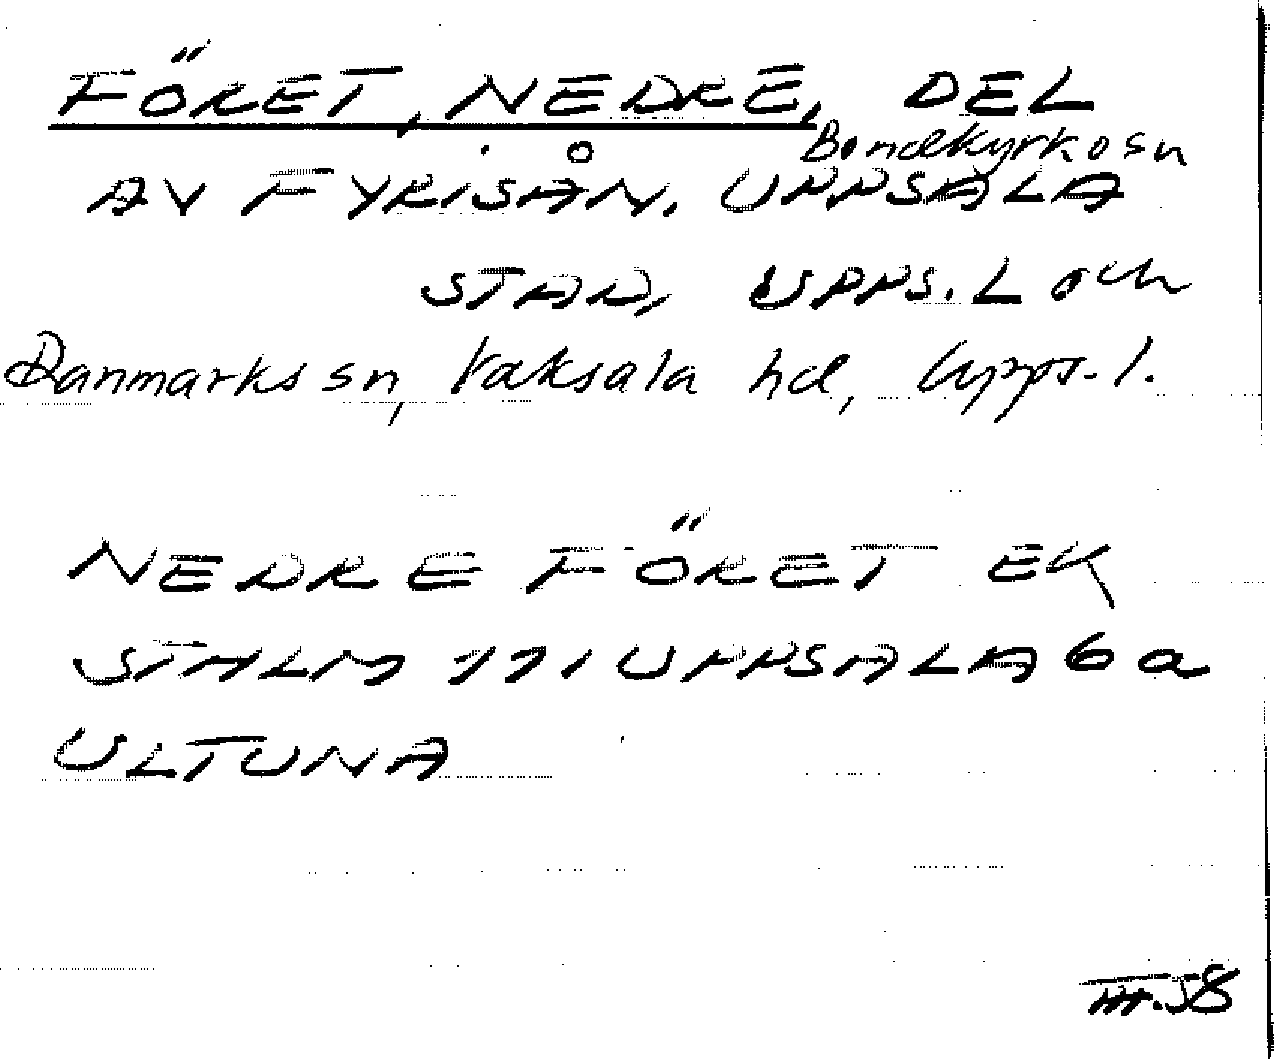 FÖRET, NEDRE, DEL
Bondkyrkosn
AV FYRISÅN. UPPSALA
STAD, UPPS. L och
Danmarks sn, Vaksala hd, Upps. l.
NEDRE FÖRET EK
STHLM 111 UPPSALA 6a
ULTUNA